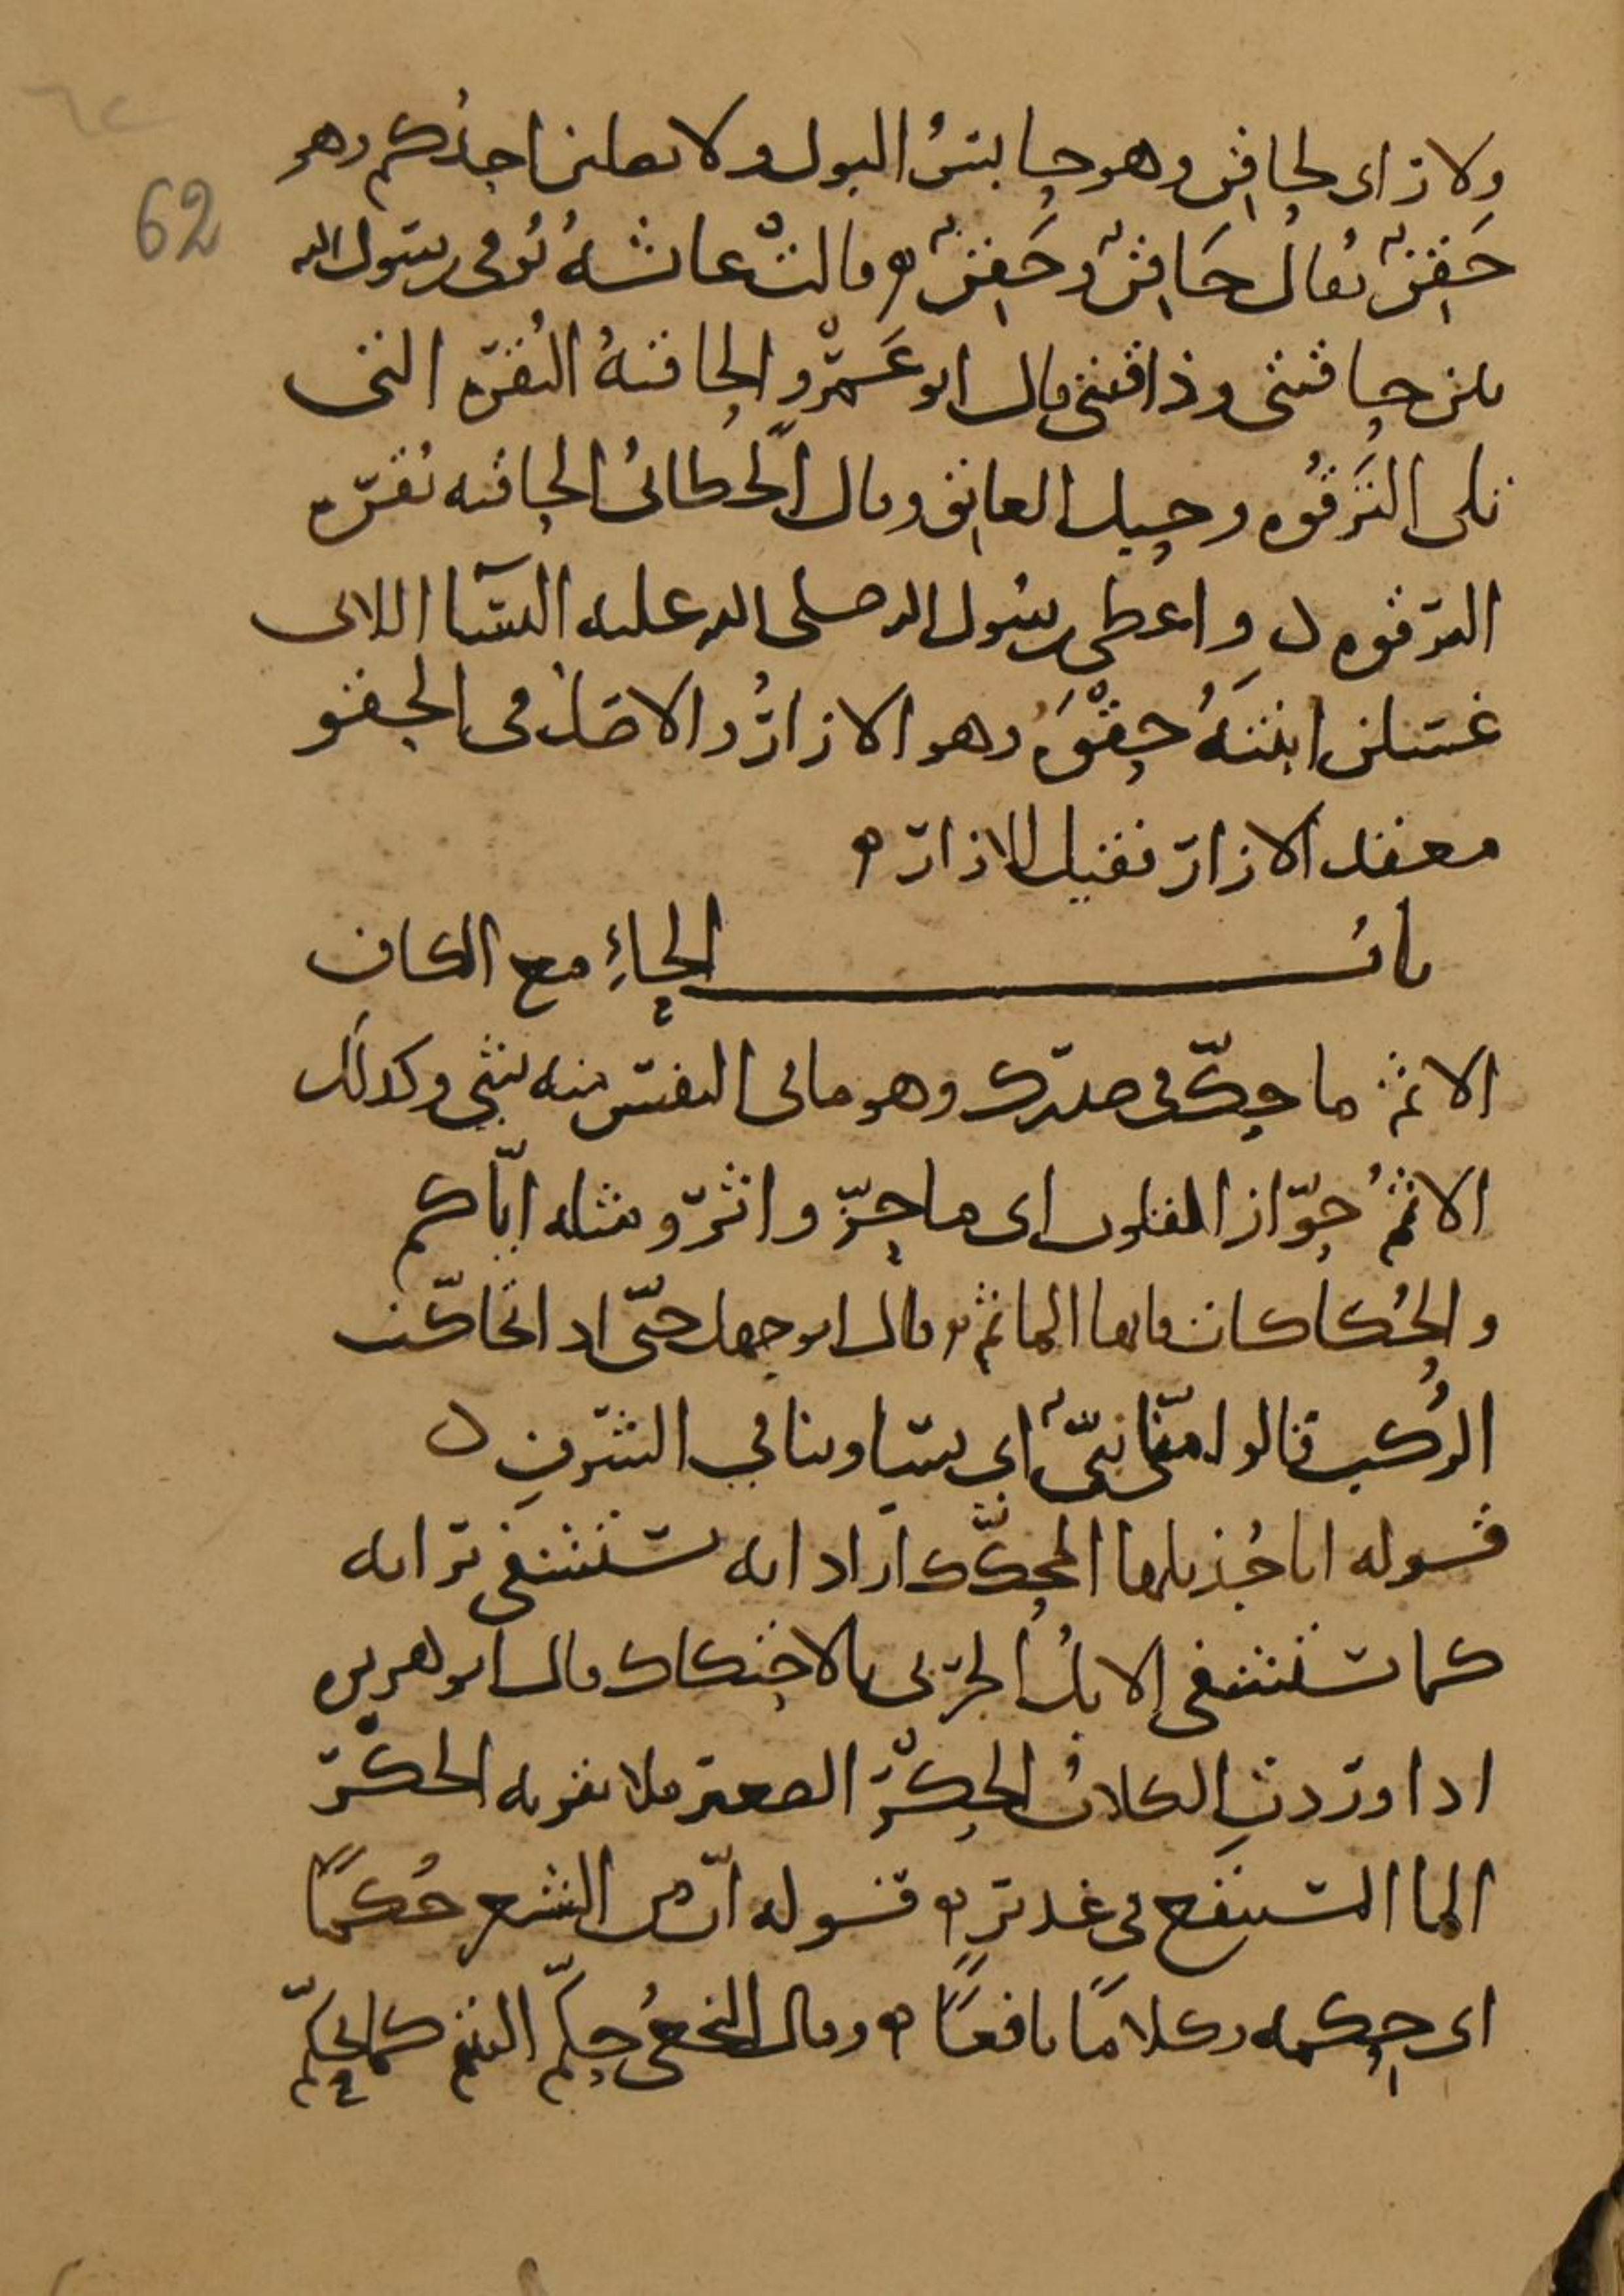 62
ولا راى لحاقن وهو حابس البول ولا يصلين احدكم وهو
حَقِنٌ يُقال حَاقِنٌ وحَقِنٌ ه قالت عائشةُ تُوفي رسول الله
بين حاقنتي وذاقنتي قال ابو عَمْرٍو الحاقنةُ النُقرة التي
تلى التَرقُوه وحبل العاتق وقال الخطّابيُ الحاقنه نُقرة
الترقوه ه واعطى رسُول الله صلى الله عليه النسآا اللاتى
غسلن ابنتهُ حِقْوَهُ وهو الازارُ والاصلُ في الحِقو
معقد الازار فقيل للازار ه
بابُ الحاءِ مع الكاف
الاثم ما حكّ في صدرك وهو ما في النفس منه شي وكذلك
الاثمُ حَوّاز القلوب اى ما حزّ واثّر ومثله ايّاكم
والحُكاكات فانها الماثم ه قال ابو جهل حتّى اذا تحاكّت
الرُكب قالوا منّا نبىٌّ اي يساوينا في الشرف ه
قوله انا جُذيلها المحكّك اراد انه يُستشفى برايه
كما تستشفي الابلُ الجربى بالاحتكاك قال ابو هريره
اذا وردتِ الكلابُ الحِكْرَ الصعير فلا تقربه الحكْرُ
الما المستنقع في غدير ه قوله انّ من الشعر حُكمًا
اى حِكمه وكلامًا نافعًا ه وقال النخعيُ حكّم اليتيم كما تُحكّم